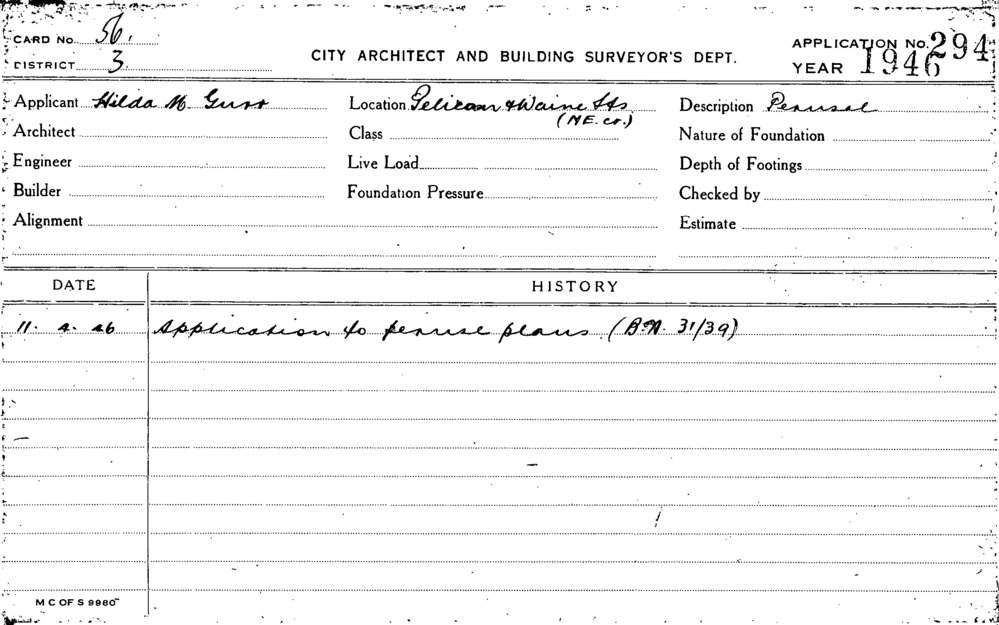 CARD No. 56.
DISTRICT 3.
CITY ARCHITECT AND BUILDING SURVEYOR'S DEPT.
APPLICATION No. 294
YEAR 1946
Applicant Hilda M. Gurr Location Pelican & Waine Sts Description Perusal
(NE. cr.)
Architect Class Nature of Foundation
Engineer Live Load Depth of Footings
Builder Foundation Pressure Checked by
Alignment Estimate
DATE HISTORY
11. 4. 46 Application to peruse plans. (B.A. 31/39)
M C OF S 9980